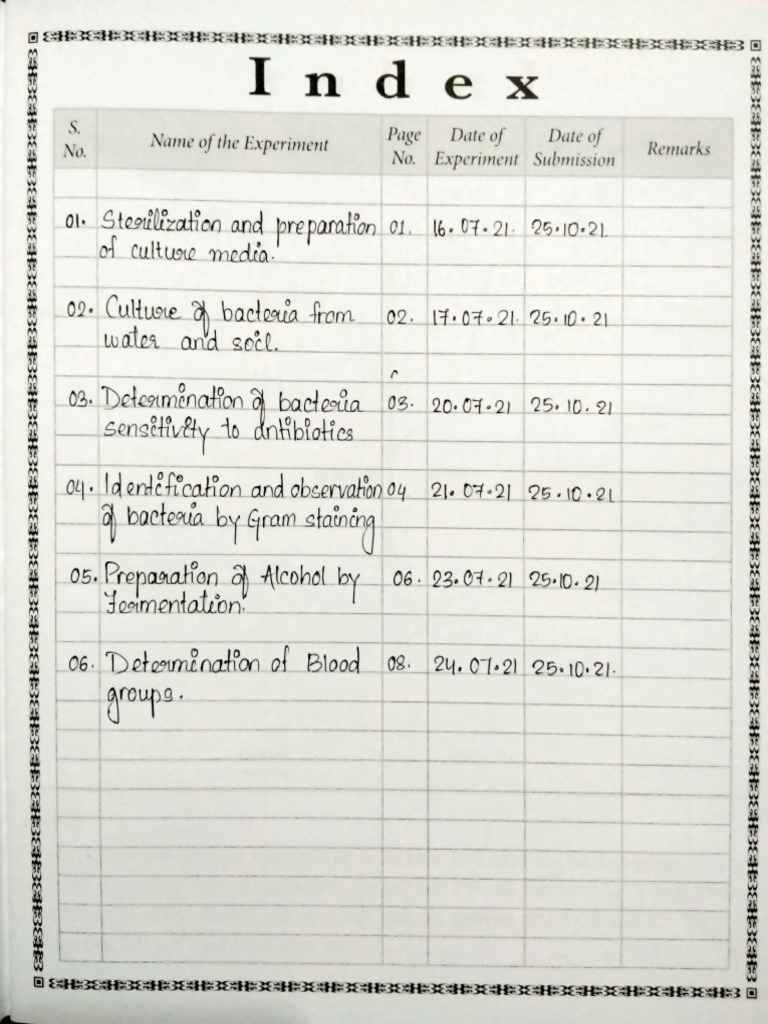 Index
S. No. Name of the Experiment Page No. Date of Experiment Date of Submission Remarks
01. Sterilization and preparation 01. 16.07.21. 25.10.21.
of culture media.
02. Culture of bacteria from 02. 17.07.21. 25.10.21
water and soil.
03. Determination of bacteria 03. 20.07.21 25.10.21
sensitivity to antibiotics
04. Identification and observation 04 21.07.21 25.10.21
of bacteria by Gram staining
05. Preparation of Alcohol by 06. 23.07.21 25.10.21
Fermentation.
06. Determination of Blood 08. 24.07.21 25.10.21.
groups.